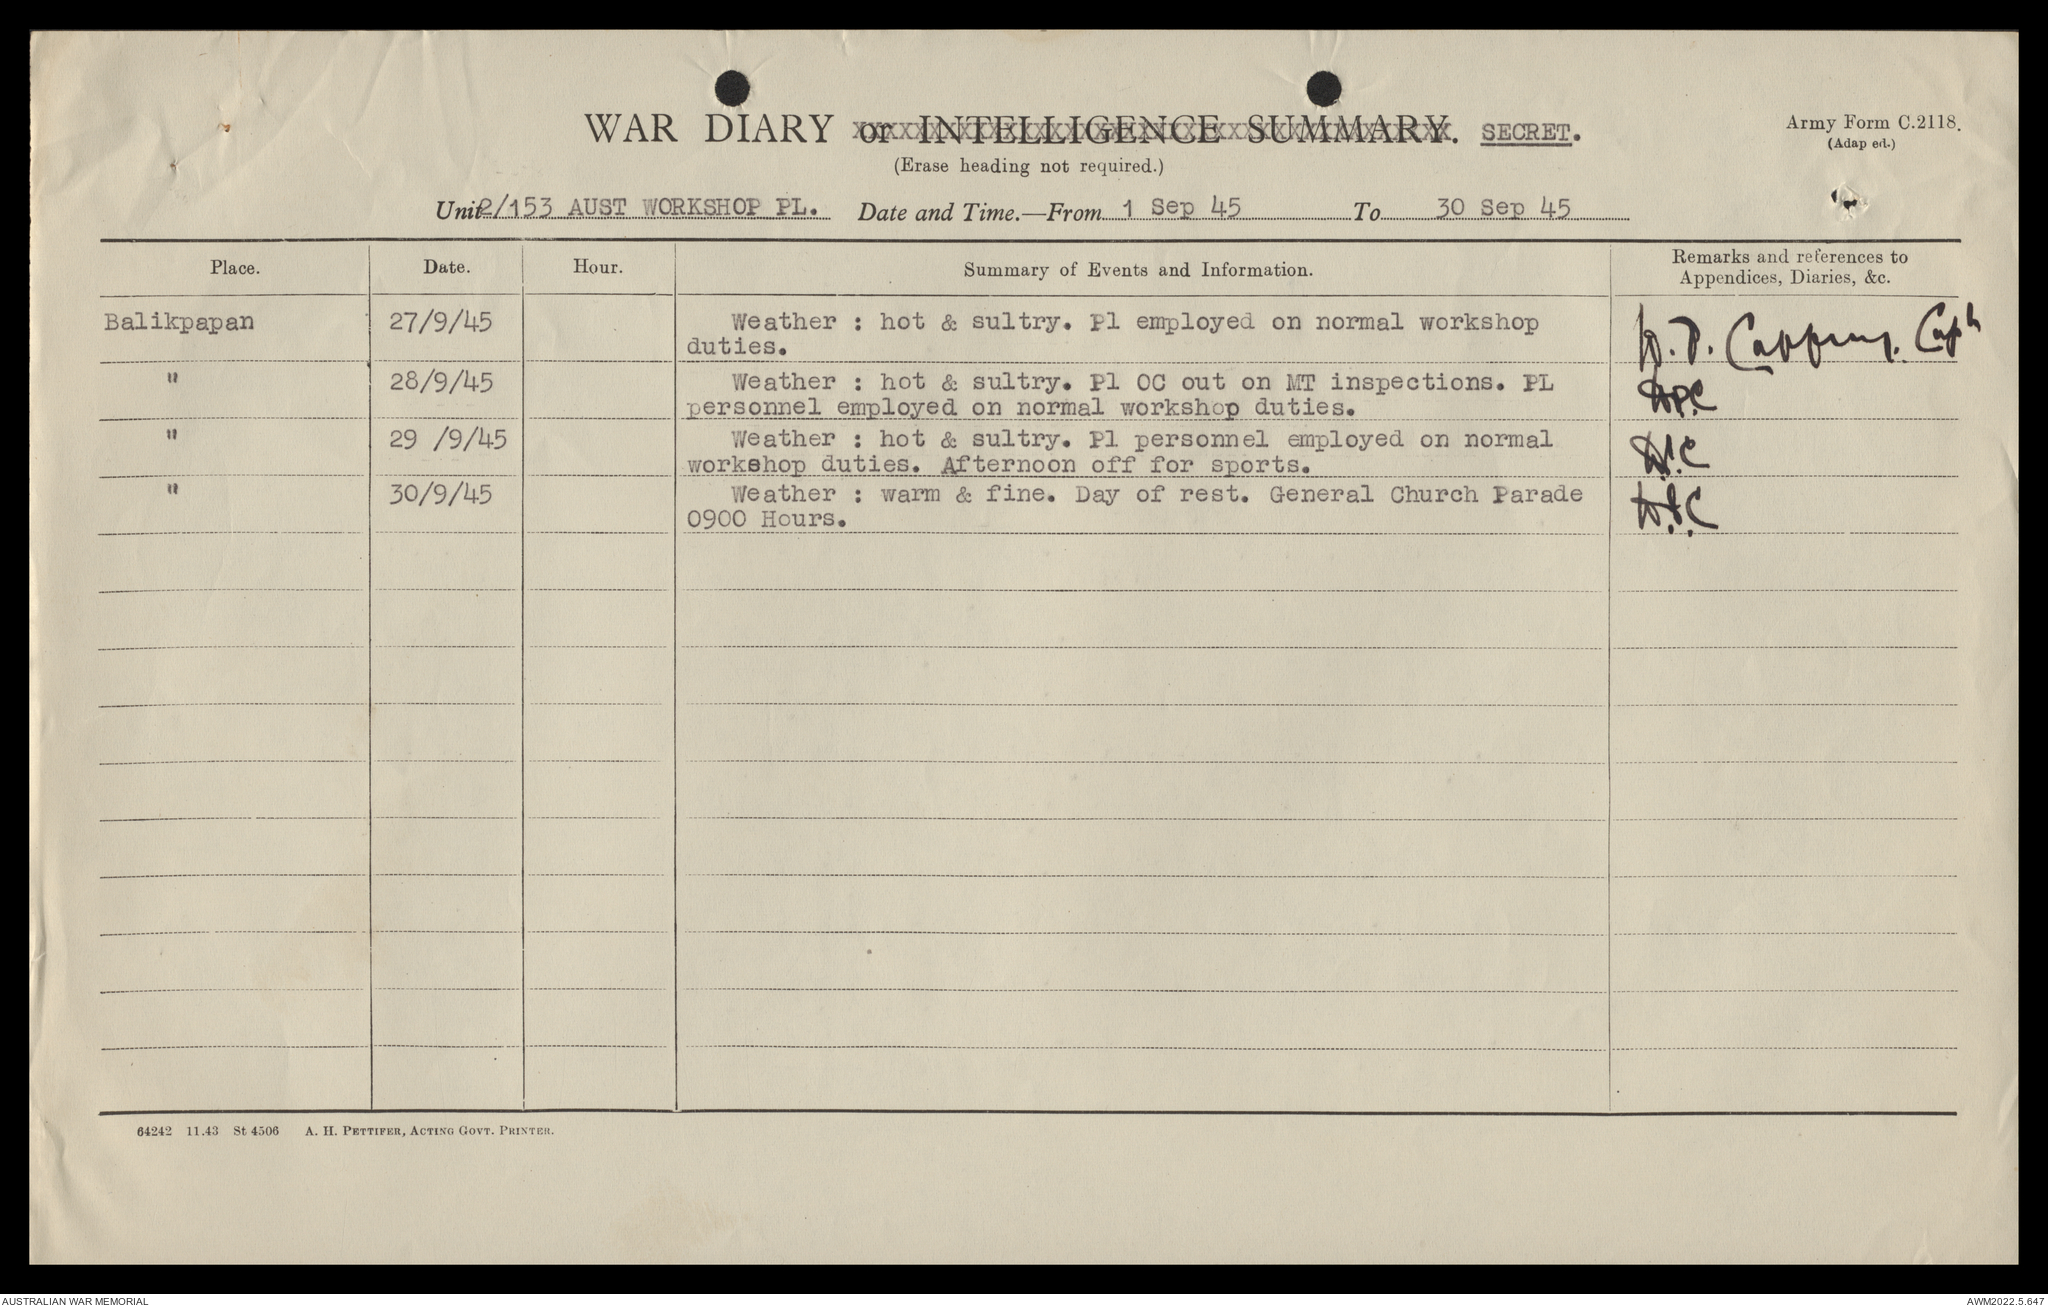 WAR DIARY or INTELLIGENCE SUMMARY. SECRET.
Army Form C.2118.
(Adapted.)
(Erase heading not required.)
Unit 2/153 AUST WORKSHOP PL. Date and Time.—From 1 Sep 45 To 30 Sep 45
Place. Date. Hour. Summary of Events and Information. Remarks and references to
Appendices, Diaries, &c.
Balikpapan 27/9/45 Weather : hot & sultry. Pl employed on normal workshop
duties. Capt
" 28/9/45 Weather : hot & sultry. Pl OC out on MT inspections. PL
personnel employed on normal workshop duties.
" 29 /9/45 Weather : hot & sultry. Pl personnel employed on normal
workshop duties. Afternoon off for sports.
" 30/9/45 Weather : warm & fine. Day of rest. General Church Parade
0900 Hours.
64242 11.43 St 4506 A. H. PETTIFER, ACTING GOVT. PRINTER.
AUSTRALIAN WAR MEMORIAL AWM2022.5.647